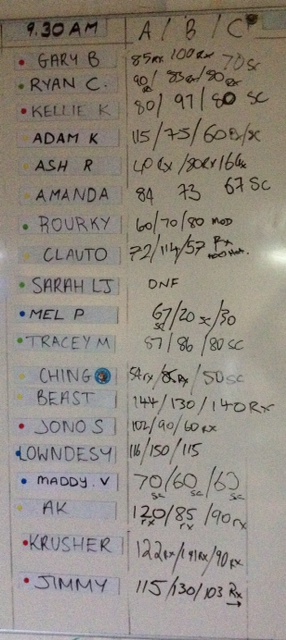 9.30 AM A / B / C
GARY B 85Rx 100Rx 70 SC
RYAN C. 90 / 85Rx / 80Rx
KELLIE K 80 / 97 / 80 SC
ADAM K 115 / 75 / 60 Rx/SC
ASH R 40 Rx / 80Rx /
AMANDA 84 73 67 SC
ROURKY 60 / 70 / 80 MOD
CLAUTO 72 / 114 / 57 Rx
SARAH LJ DNF
MEL P 67 / 20 SC / 30
SC
TRACEY M 87 / 86 / 80 SC
CHING 54Rx / 85Rx / 50SC
BEAST 144 / 130 / 140 Rx
JONO S 102 / 90 / 60 Rx
LOWNDESY 116 / 150 / 115
MADDY.V 70 / 60 / 60
SC SC SC
AK 120 / 85 / 90 Rx
RX rx
KRUSHER 122Rx / 141Rx / 90Rx
JIMMY 115 / 130 / 103 Rx →